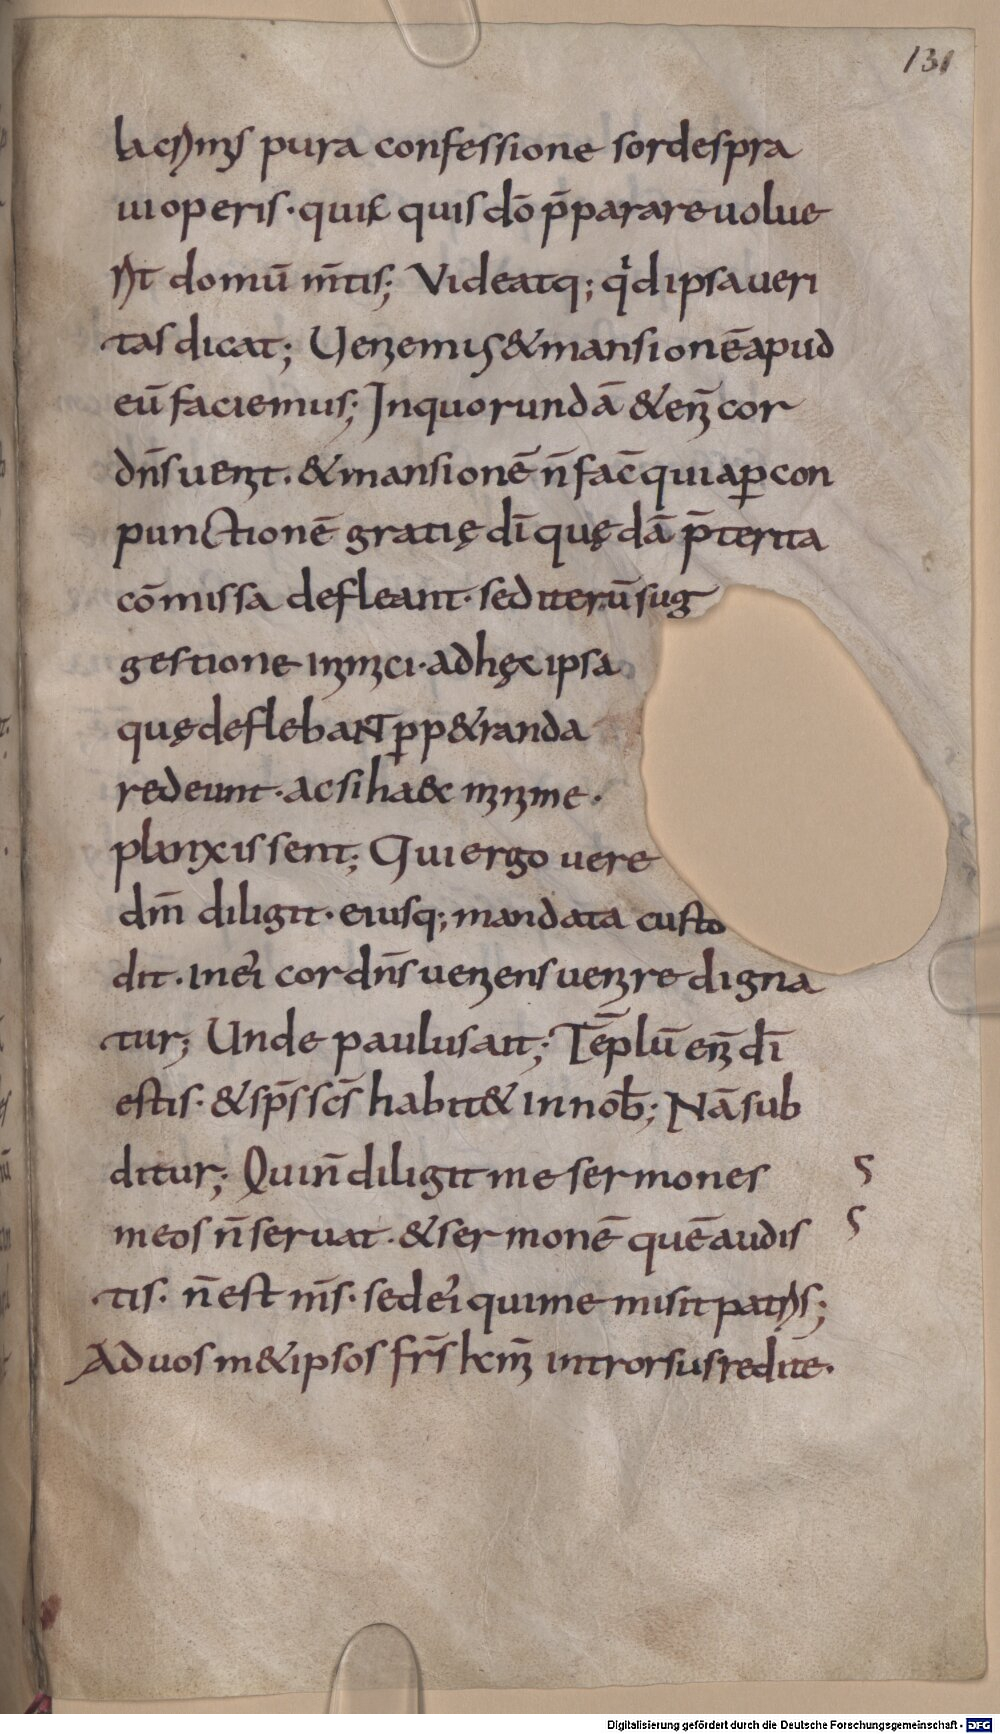 131
lacrimis pura confessione sordes pra
ui operis · quisquis dō p̄parare uolue
rit domū m̄tis; Videatq; qͥd ipsa ueri
tas dicat; Veniemus & mansionē apud
eū faciemus; In quorundā &eni̅ cor
dn̄s uenit · & mansionē n̄ fac̄ quia ꝑ con
punctionē gratię dī quędā p̄terita
cōmissa defleant · sed iterū sug
gestione inimici · ad hęc ipsa
quę deflebaNT ꝑp&randa
redeunt · ac si haec minime ·
planxissent; Qui ergo uere
dm̄ diligit · eiusq; mandata custo
dit · in ei cor dn̄s ueniens uenire digna
tur; Unde paulus ait; Tēplū eni̅ dī
estis · & sp̄s sc̄s habit& in nob̄; Nā sub
ditur; Qui n̄ diligit me sermones
meos n̄ seruat · & sermonē quē audis
tis · n̄ est m̄s · sed ei qui me misit patris;
Ad uos m&ipsos fr̄s kmi̅ introrsus redite ·
Digitalisierung gefördert durch die Deutsche Forschungsgemeinschaft - DFG